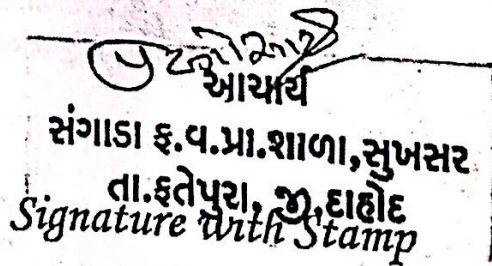 આચાર્ય
સંગાડા ફ.વ.પ્રા.શાળા,સુખસર
તા.ફતેપુરા, જી,દાહોદ
Signature with Stamp